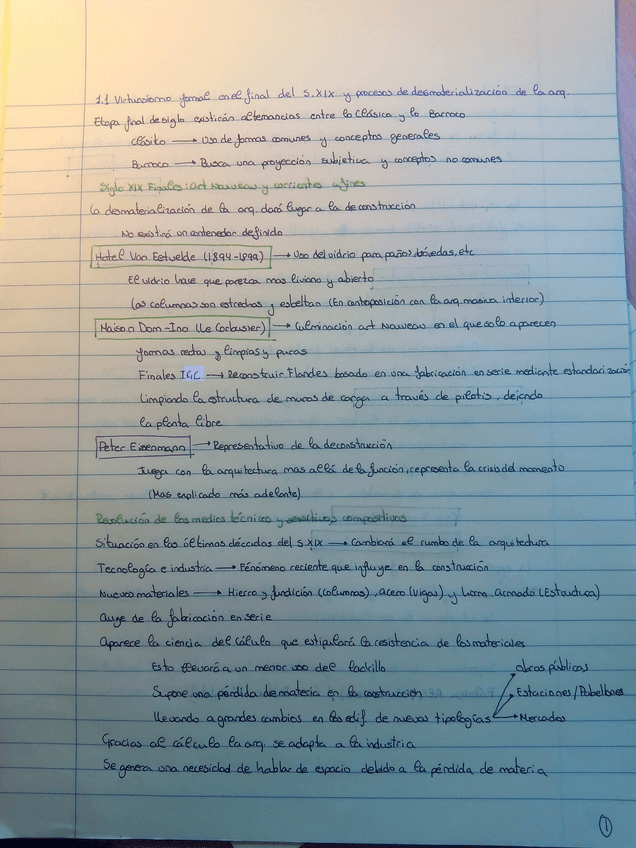 1.1 Virtuosismo formal en el final del S.XIX y procesos de desmaterialización de la arq.
Etapa final de siglo existirán alternancias entre lo Clásico y lo Barroco
Clásico → Uso de formas comunes y conceptos generales
Barroco → Busca una proyección subjetiva y conceptos no comunes
Siglo XIX Finales: Art Nouveau y corrientes afines
La desmaterialización de la arq. dará lugar a la deconstrucción
No existirá un contenedor definido
Hotel Van Eetvelde (1894-1899) → Uso del vidrio para paños, bóvedas, etc
El vidrio hace que parezca mas liviano y abierto
Las columnas son estrechas y esbeltas (En contraposición con la arq. masiva interior)
Maison Dom-Ino (Le Corbusier) → Culminación art Nouveau en el que solo aparecen
formas rectas y limpias y puras
Finales IGC → Reconstruir Flandes basado en una fabricación en serie mediante estandarización
Limpiando la estructura de muros de carga a través de pilotis, dejando
la planta libre
Peter Eisenmann → Representativo de la deconstrucción
Juega con la arquitectura mas allá de la función, representa la crisis del momento
(Mas explicado más adelante)
Revolución de los medios técnicos y sensitivos compositivos
Situación en las últimas décadas del S XIX → Cambiará el rumbo de la arquitectura
Tecnología e industria → Fenómeno reciente que influye en la construcción
Nuevos materiales → Hierro y fundición (Columnas), acero (Vigas) y Horm. armado (Estructura)
Auge de la fabricación en serie
Aparece la ciencia del Cálculo que estipulará la resistencia de los materiales
Esto llevará a un menor uso del ladrillo
Supone una pérdida de materia en la construcción
Llevando a grandes cambios en la edif. de nuevas tipologías
obras públicas
Estaciones/Pabellones
Mercados
Gracias al cálculo la arq. se adapta a la industria
Se genera una necesidad de hablar de espacio debido a la pérdida de materia
1